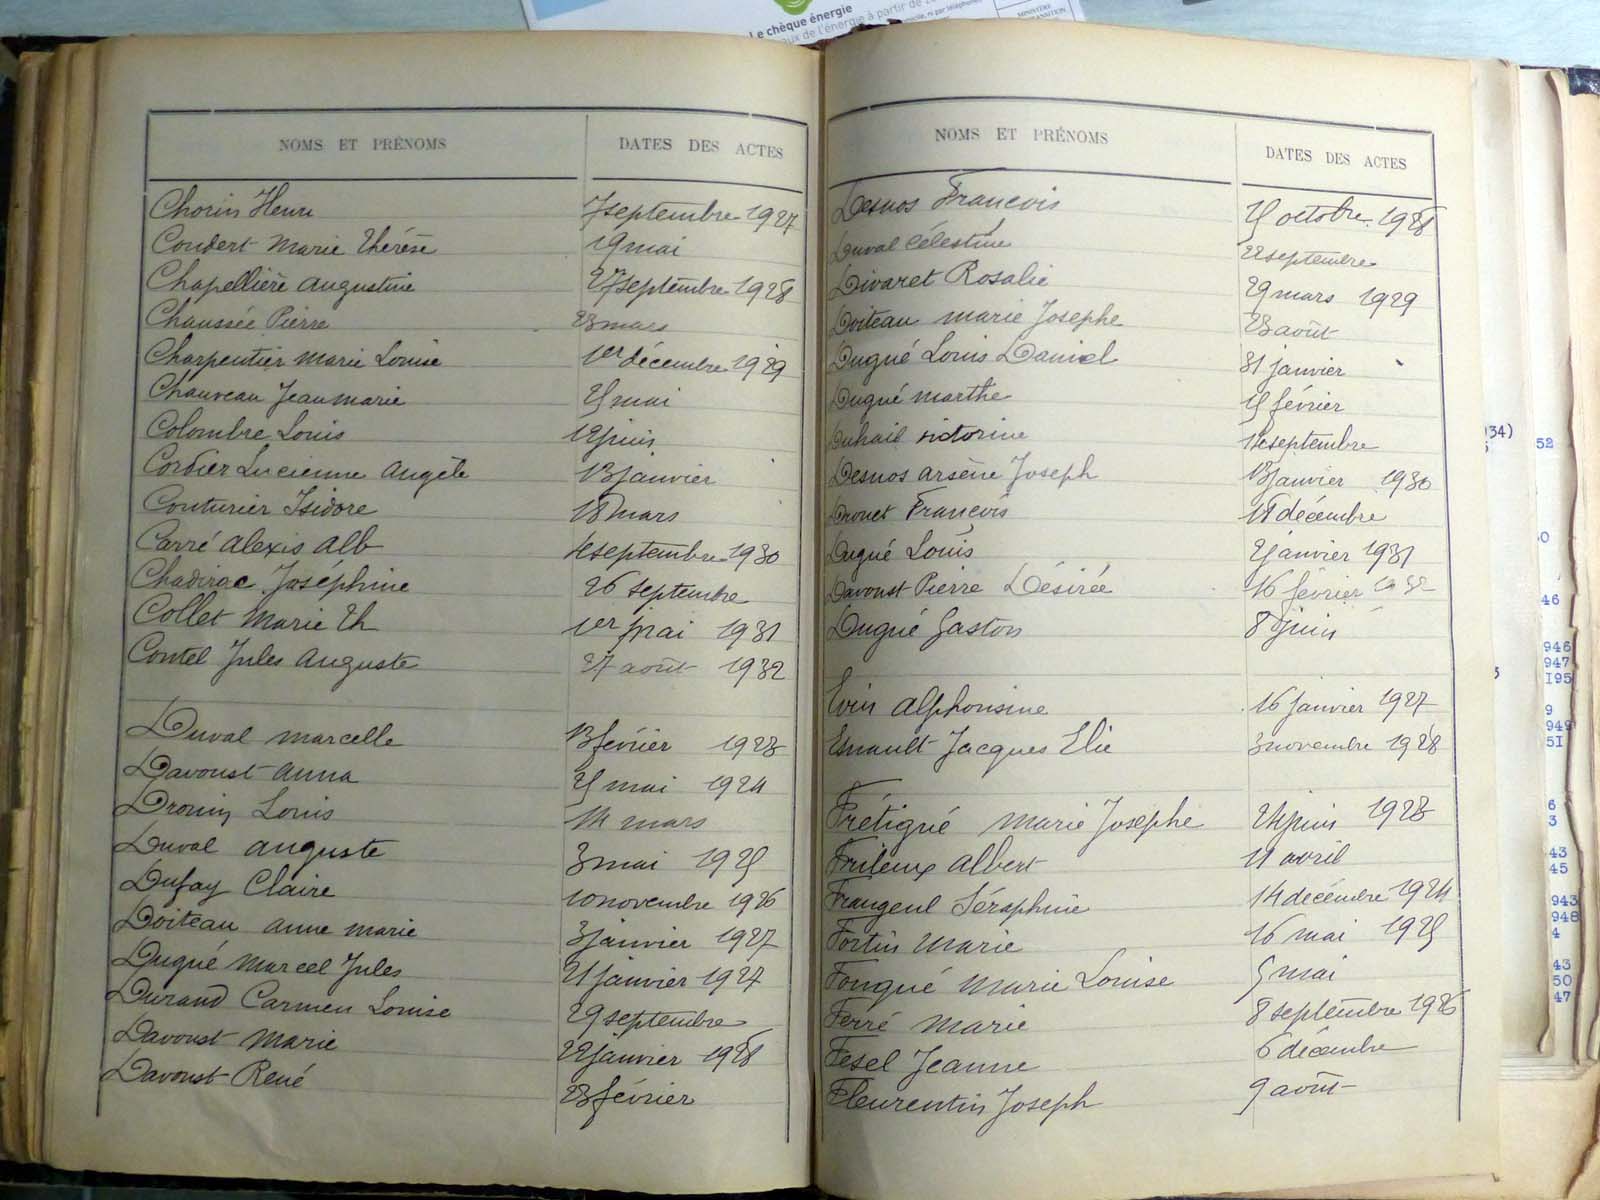 Le chèque énergie
aux de l'énergie à partir de
NOMS ET PRÉNOMS DATES DES ACTES
Chorin Henri 7 septembre 1927
Coudert Marie Thérèse 19 mai
Chapellière Augustine 27 septembre 1928
Chaussée Pierre 23 mars
Charpentier Marie Louise 1er décembre 1929
Chauveau Jean Marie 25 mai
Colombre Louis 12 juin
Cordier Lucienne Angèle 13 janvier
Couturier Isidore 18 mars
Carré Alexis Alb septembre 1930
Chadirac Joséphine 26 septembre
Collet Marie Th 1er mai 1931
Contel Jules Auguste 27 août 1932
Duval Marcelle 13 février 1923
Davoust Anna 25 mai 1924
Drouin Louis 14 mars
Duval Auguste 3 mai 1925
Dufay Claire 10 novembre 1926
Doiteau Anne Marie 3 janvier 1927
Dugué Marcel Jules 21 janvier 1927
Durand Carmen Louise 29 septembre
Davoust Marie 22 janvier 1928
Davoust René 23 février
NOMS ET PRÉNOMS DATES DES ACTES
Desnos François 15 octobre 1928
Duval Célestine 22 septembre
Divaret Rosalie 29 mars 1929
Doiteau Marie Josephe 23 août
Dugué Louis Daniel 31 janvier
Dugué Marthe 15 février
Duhail Victorine septembre
Desnos Arsène Joseph 13 janvier 1930
Drouet François 11 décembre
Dugué Louis 2 janvier 1931
Davoust Pierre Désirée 16 février 1932
Dugué Gaston 8 juin
Evin Alphonsine 16 janvier 1927
Esnault Jacques Elie 3 novembre 1928
Frétigué Marie Josephe 24 juin 1923
Frileux Albert 11 avril
Frangeul Séraphine 14 décembre 1924
Fortin Marie 16 mai 1925
Fougué Marie Louise 5 mai
Ferré Marie 8 septembre 1926
Fesel Jeanne 6 décembre
Fleurentin Joseph 9 août
34)
52
46
946
947
195
9
949
51
6
3
43
45
943
948
4
43
50
47